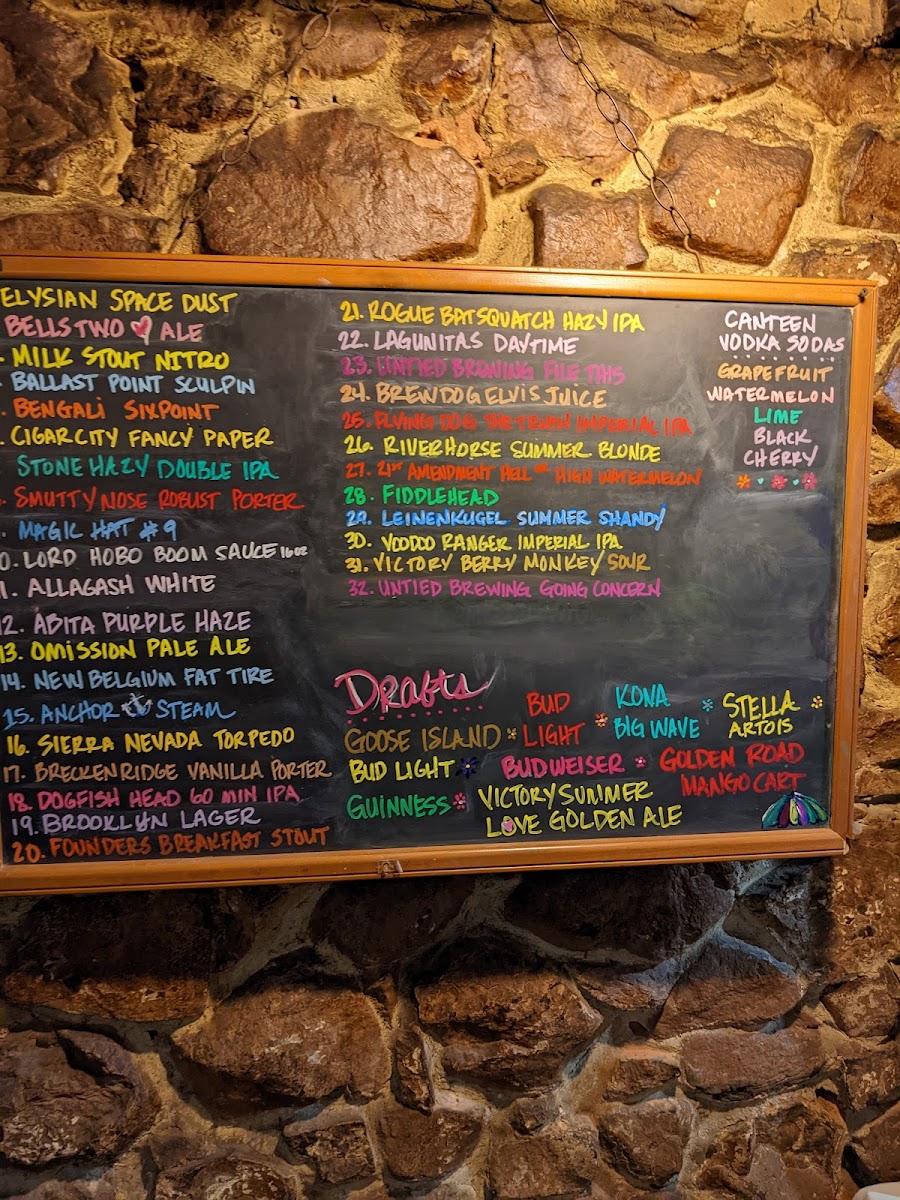 ELYSIAN SPACE DUST
BELLS TWO ♥ ALE
MILK STOUT NITRO
BALLAST POINT SCULPIN
BENGALI SIXPOINT
CIGAR CITY FANCY PAPER
STONE HAZY DOUBLE IPA
SMUTTYNOSE ROBUST PORTER
MAGIC HAT #9
0. LORD HOBO BOOM SAUCE 16oz
1. ALLAGASH WHITE
12. ABITA PURPLE HAZE
13. OMISSION PALE ALE
14. NEW BELGIUM FAT TIRE
15. ANCHOR STEAM
16. SIERRA NEVADA TORPEDO
17. BRECKENRIDGE VANILLA PORTER
18. DOGFISH HEAD 60 MIN IPA
19. BROOKLYN LAGER
20. FOUNDERS BREAKFAST STOUT
21. ROGUE BATSQUATCH HAZY IPA
22. LAGUNITAS DAYTIME
23. UNTIED BREWING FILE THIS
24. BREWDOG ELVIS JUICE
25. FLYING DOG THE TRUTH IMPERIAL IPA
26. RIVERHORSE SUMMER BLONDE
27. 21ST AMENDMENT HELL OR HIGH WATERMELON
28. FIDDLEHEAD
29. LEINENKUGEL SUMMER SHANDY
30. VOODOO RANGER IMPERIAL IPA
31. VICTORY BERRY MONKEY SOUR
32. UNTIED BREWING GOING CONCERN
CANTEEN
VODKA SODAS
GRAPEFRUIT
WATERMELON
LIME
BLACK
CHERRY
Drafts
GOOSE ISLAND
BUD
LIGHT
KONA
BIG WAVE
STELLA
ARTOIS
BUD LIGHT
BUDWEISER
GOLDEN ROAD
MANGO CART
GUINNESS
VICTORY SUMMER
LOVE GOLDEN ALE